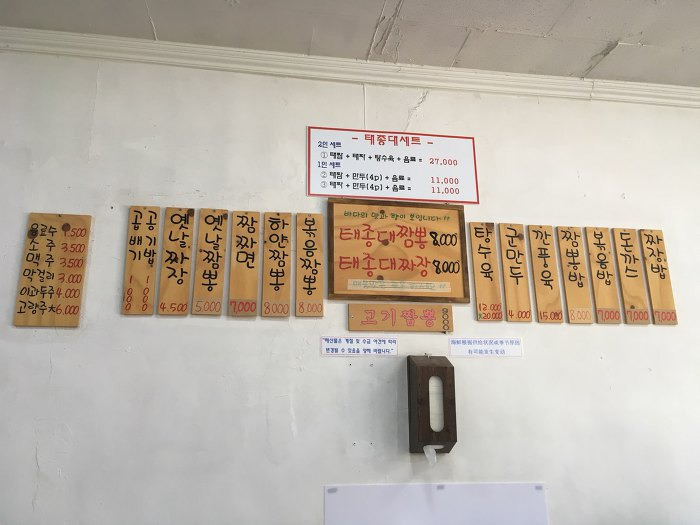 - 태종대세트 -
2인 세트
① 태짬 + 태짜 + 탕수육 + 음료 = 27,000
1인 세트
② 태짬 + 만두(4p) + 음료 = 11,000
③ 태짜 + 만두(4p) + 음료 = 11,000
음료수 1.500
소주 3.500
맥주 3.500
막걸리 3.000
이과두주 4.000
고량주大6.000
공기밥
곱배기
1000
옛날짜장
4.500
옛날짬뽕
5,000
짬짜면
7,000
하얀짬뽕
8000
볶음짬뽕
8,000
바다의 맛과 향이 보입니다!!
태종대짬뽕 8,000
태종대짜장 8,000
고기짬뽕 8000
탕수육
12,000
大20,000
군만두
4,000
깐풍육
15,000
짬뽕밥
8,000
볶음밥
7,000
돈까스
7,000
짜장밥
7,000
"해산물은 계절 및 수급 여건에 따라
변경될 수 있음을 양해 바랍니다."
海鲜根据供给状况或季节原因
有可能发生变动